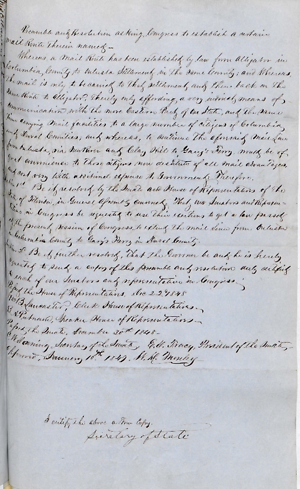 Preamble and Resolution asking Congress to establish a certain
mail Route therein named
Whereas a Mail Route has been established by law from Alligator in
Columbia County to Settlement in the same County, and Whereas
the mail is only to be carried to that Settlement and then back on the
same Route to Alligator, thereby only affording a very means of
communication with the more Eastern Part of our State, and the same
mail facilities to a large number of citizens of Columbia
and Duval Counties, and whereas, to continue the aforesaid mail Line
via and Clay Hill to Ferry, would be of
great convenience to those citizens now destitute of all mail advantages
and not very little additional expense to Government Therefore
Be it resolved by the Senate and House of Representatives of the
State of Florida in General Assembly convened, That our Senators and Representative
in Congress be requested to use their exertions to get a law passed
at the present session of Congress to extend the mail line from
Columbia County to Ferry in Duval County
Be it further resolved, That the Governor be and he is hereby
requested to send a copy of this Preamble and resolution duly
to each of our Senators and representative in Congress
Passed the House of Representatives Nov 27th 1848
Clerk House of Representatives
Speaker House of Representatives
Passed the Senate, December 20th 1848
Secretary of the Senate, President of the Senate
Approved, January 10th 1849,
I certify the above a True Copy
Secretary of State